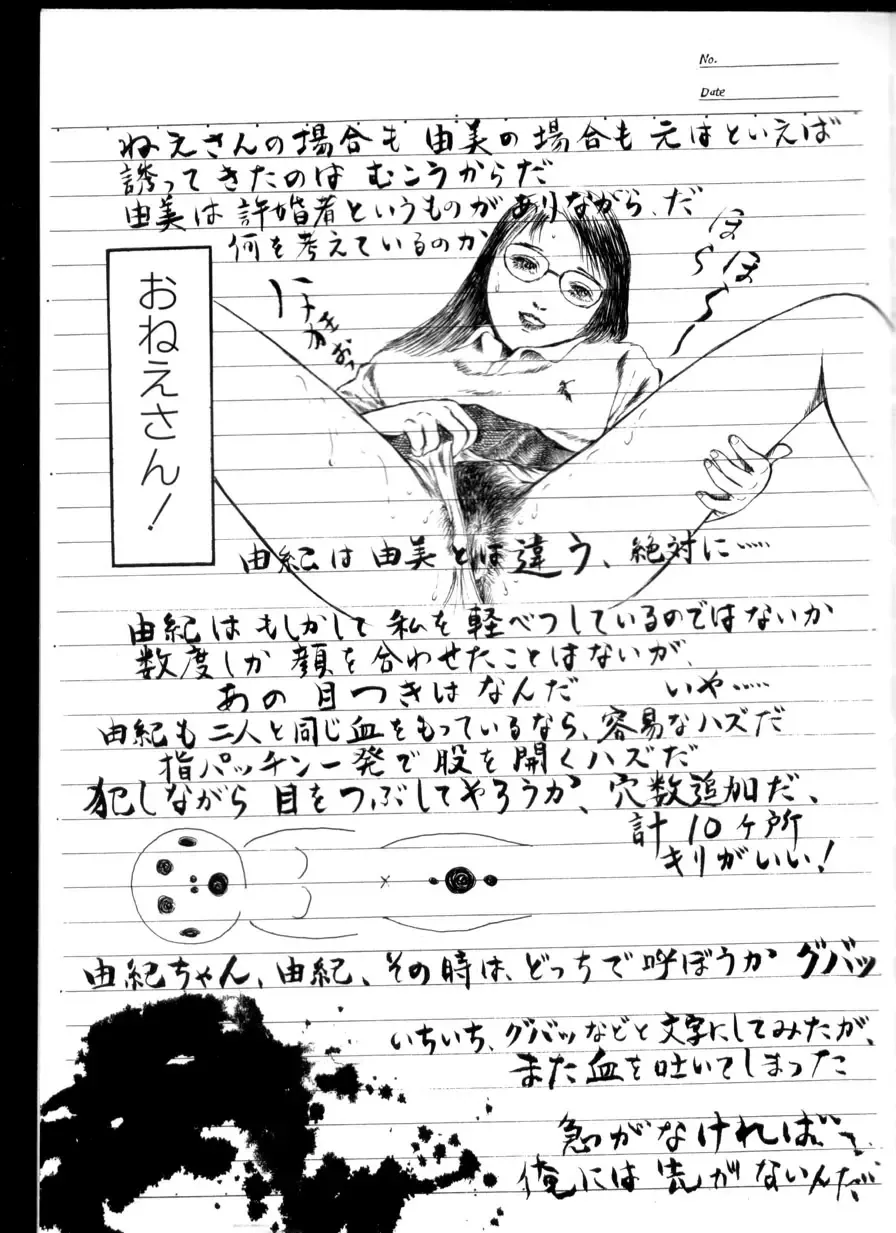 No.
Date
ねえさんの場合も 由美の場合も 元はといえば
誘ってきたのは むこうからだ
由美は 許婚者というものがありながら、だ
何を考えているのか
ほ〜らほ〜ら
おねえさん!
由紀は 由美とは違う、絶対に……
由紀は もしかして 私を 軽べつしているのではないか
数度しか 顔を合わせたことはないが、
あの目つきはなんだ いや……
由紀も二人と同じ血をもっているなら、容易なハズだ
指パッチン一発で股を開くハズだ
犯しながら 目をつぶしてやろうか、穴数追加だ、
計 10ヶ所
キリがいい!
由紀ちゃん、由紀、その時は、どっちで呼ぼうか グバッ
いちいち、グバッなどと文字にしてみたが、
また血を吐いてしまった
急がなければ
俺には先がないんだ